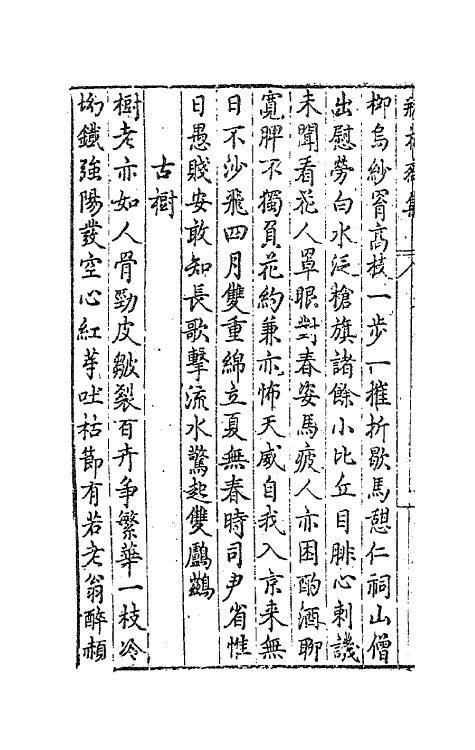 柳烏紗罥高枝一步一摧折歇馬憩仁祠山僧
出慰勞白水泛槍旗諸餘小比丘目腓心刺譏
未聞看花人罩眼對春姿馬疲人亦困酌酒聊
寬脾不獨負花約兼亦怖天威自我入京来無
日不沙飛四月雙重綿立夏無春時司尹省惟
日愚賤安敢知長歌擊流水驚起雙鸕鷀
古樹
樹老亦如人骨勁皮皺裂百卉争繁華一枝冷
坳鐵強陽發空心紅芽吐枯節有若老翁醉頳